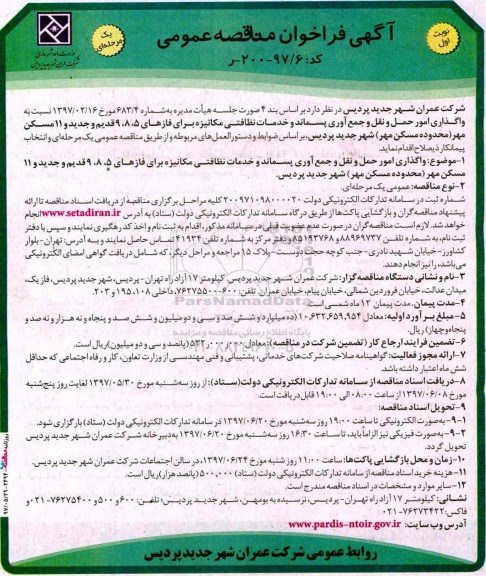 آگهی فراخوان مناقصه عمومی
کد: ۲۰۰-۹۷/۶-ر
نوبت اول
یک مرحله‌ای
شرکت عمران شهر جدید پردیس در نظر دارد بر اساس بند ۴ صورت جلسه هیأت مدیره به شماره ۶۸۳/۴ مورخ ۱۳۹۷/۰۲/۱۶ نسبت به
واگذاری امور حمل و نقل و جمع آوری پسماند و خدمات نظافتی مکانیزه برای فازهای ۵، ۸، ۹ قدیم و جدید و ۱۱ مسکن
مهر (محدوده مسکن مهر) شهر جدید پردیس، بر اساس ضوابط و دستورالعمل‌های مربوطه و از طریق مناقصه عمومی یک مرحله‌ای و انتخاب
پیمانکار ذیصلاح اقدام نماید.
۱-موضوع: واگذاری امور حمل و نقل و جمع آوری پسماند و خدمات نظافتی مکانیزه برای فازهای ۵، ۸، ۹ قدیم و جدید و ۱۱
مسکن مهر (محدوده مسکن مهر) شهر جدید پردیس.
۲-نوع مناقصه: عمومی یک مرحله‌ای.
شماره ثبت در سامانه تدارکات الکترونیکی دولت ۲۰۰۹۷۱۰۹۸۰۰۰۰۲۰ کلیه مراحل برگزاری مناقصه از دریافت اسناد مناقصه تا ارائه
پیشنهاد مناقصه گران و بازگشایی پاکت‌ها از طریق درگاه سامانه تدارکات الکترونیکی دولت (ستاد) به آدرس www.setadiran.ir انجام
خواهد شد. لازم است مناقصه گران در صورت عدم عضویت قبلی در سامانه مذکور، اقدام به ثبت نام و اخذ کد رهگیری نمایند و سپس با دفتر
ثبت نام، به شماره تلفن ۸۸۹۶۹۷۳۷ و ۸۵۱۹۳۷۶۸ و دفتر مرکز به شماره تلفن ۴۱۹۳۴ تماس حاصل نمایند و به آدرس: تهران-بلوار
کشاورز- خیابان شهید نادری- جنب کوچه حجت دوست- پلاک ۱۵ مراجعه و مراحل دیگر، که شامل دریافت گواهی امضای الکترونیکی
می‌باشد، را نیز انجام دهند.
۳-نام و نشانی دستگاه مناقصه گزار: شرکت عمران شهر جدید پردیس. کیلومتر ۱۷ آزاد راه تهران - پردیس، شهر جدید پردیس، فاز یک،
میدان عدالت، خیابان فروردین شمالی، خیابان پیام، خیابان عمران، تلفن: ۶۰۰-۷۶۲۷۵۵۰۰، داخلی ۱۹۵،۱۰۸ و ۲۰۳.
۴-مدت پیمان: مدت پیمان ۱۲ ماه شمسی است.
۵-مبلغ برآورد اولیه: معادل ۱۰,۶۳۲,۶۵۹,۹۵۴ (ده میلیارد و شش صد و سی و دو میلیون و شش صد و پنجاه و نه هزار و نه صد و
پنجاه و چهار) ریال.
۶-تضمین فرایند ارجاع کار (تضمین شرکت در مناقصه): معادل ۵۳۲,۰۰۰,۰۰۰ (پانصد و سی و دو میلیون) ریال است.
۷-ارائه مجوز فعالیت: گواهینامه صلاحیت شرکت‌های خدماتی، پشتیبانی و فنی مهندسی از وزارت تعاون، کار و رفاه اجتماعی که حداقل
شش ماه اعتبار داشته باشد.
۸-دریافت اسناد مناقصه از سامانه تدارکات الکترونیکی دولت (ستاد): از روز سه‌شنبه مورخ ۱۳۹۷/۰۵/۳۰ لغایت روز پنجشنبه
مورخ ۱۳۹۷/۰۶/۰۸ از ساعت ۰۸:۰۰ الی ۱۹:۰۰ قابل دریافت است.
۹-تحویل اسناد مناقصه:
۹-۱-به صورت الکترونیکی تا ساعت ۱۹:۰۰ روز سه‌شنبه مورخ ۱۳۹۷/۰۶/۲۰ در سامانه تدارکات الکترونیکی دولت (ستاد) بارگزاری شود.
۹-۲-به صورت فیزیکی نیز الزاماً باید، تا ساعت ۱۶:۳۰ روز سه‌شنبه مورخ ۱۳۹۷/۰۶/۲۰ به دبیرخانه شرکت عمران شهر جدید پردیس
تحویل گردد.
۱۰-زمان و محل بازگشایی پاکت‌ها: ساعت ۱۱:۰۰ روز شنبه مورخ ۱۳۹۷/۰۶/۲۴، در سالن اجتماعات شرکت عمران شهر جدید پردیس.
۱۱-هزینه خرید اسناد مناقصه از سامانه تدارکات الکترونیکی دولت (ستاد) ۵۰۰,۰۰۰ (پانصد هزار) ریال است.
۱۲-سایر موارد و مشخصات در اسناد مناقصه مندرج است.
نشانی: کیلومتر ۱۷ آزاد راه تهران - پردیس، نرسیده به بومهن، شهر جدید پردیس؛ تلفن: ۶۰۰ و ۵۰۰ و ۷۶۲۷۵۴۰۰-۰۲۱ و
فاکس: ۷۶۲۷۳۴۲۲-۰۲۱.
آدرس وب سایت: www.pardis-ntoir.gov.ir
روابط عمومی شرکت عمران شهر جدید پردیس